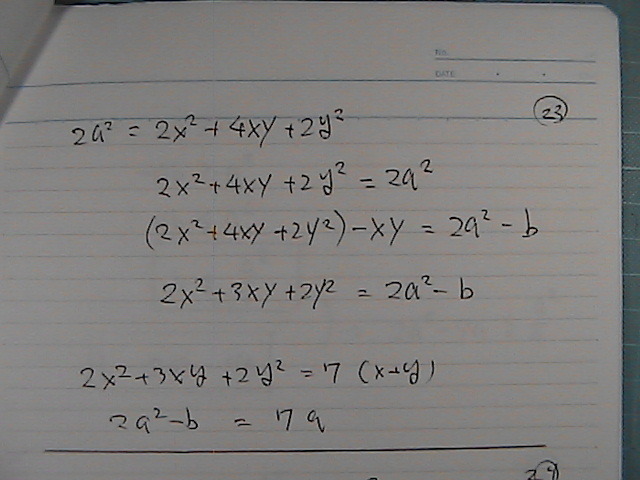 NO.
DATE
23
2a² = 2x² + 4xy + 2y²
2x² + 4xy + 2y² = 2a²
(2x² + 4xy + 2y²) - xy = 2a² - b
2x² + 3xy + 2y² = 2a² - b
2x² + 3xy + 2y² = 7 (x+y)
2a² - b = 7a